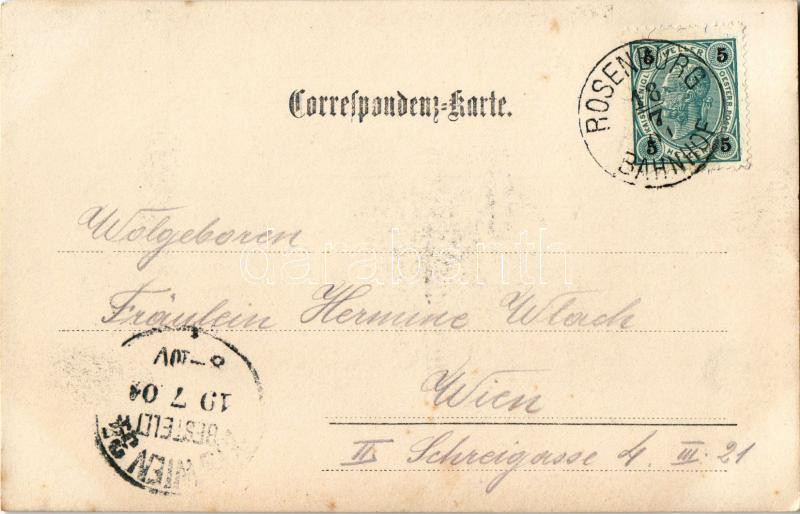 Correspondenz=Karte.
5 HELLER 5
5 5
ROSENBURG
18
7
BAHNHOF
Wolgeboren
darabanth
Fräulein Hermine Wlach
Wien
II Schreigasse 4. III. 21
WIEN
BESTELLT
19 7 04
8-10V